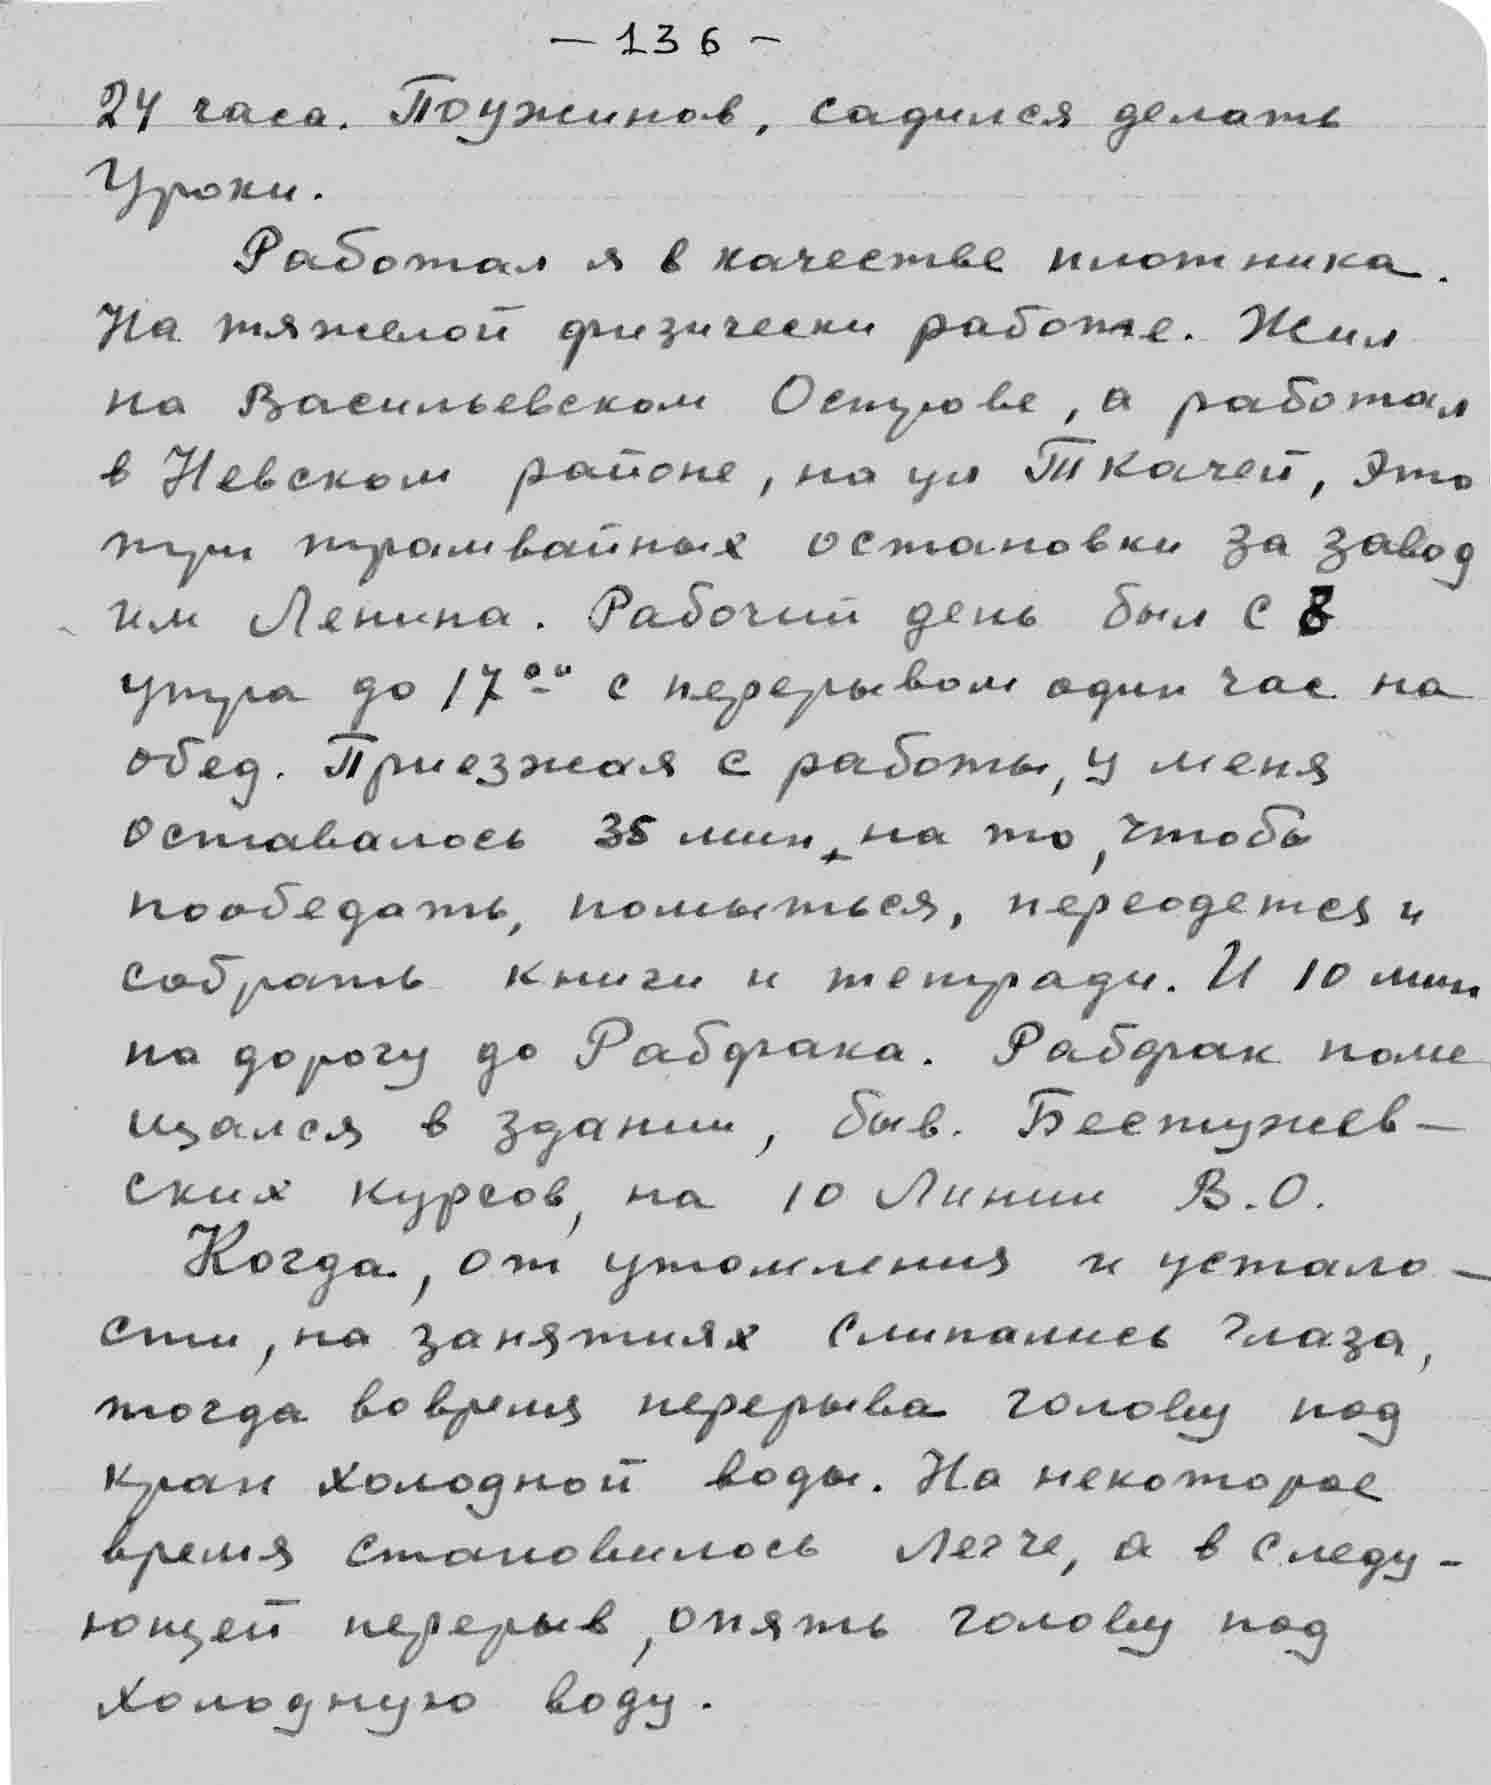 — 136 —
24 часа. Поужинав, садился делать
Уроки.
Работал я в качестве плотника.
На тяжелой физически работе. Жил
на Васильевском Острове, а работал
в Невском районе, на ул Ткачей, Это
три трамвайных остановки за завод
им Ленина. Рабочий день был с 8
утра до 17⁰⁰ с перерывом один час на
обед. Приезжая с работы, у меня
оставалось 35 мин. на то, чтобы
пообедать, помыться, переодется и
собрать книги и тетради. И 10 мин
на дорогу до Рабфака. Рабфак поме
щался в здании, быв. Бестужев-
ских курсов, на 10 Линии В.О.
Когда, от утомления и устало-
сти, на занятиях слипались глаза,
тогда вовремя перерыва голову под
кран холодной воды. На некоторое
время становилось легче, а в следу-
ющей перерыв, опять голову под
холодную воду.